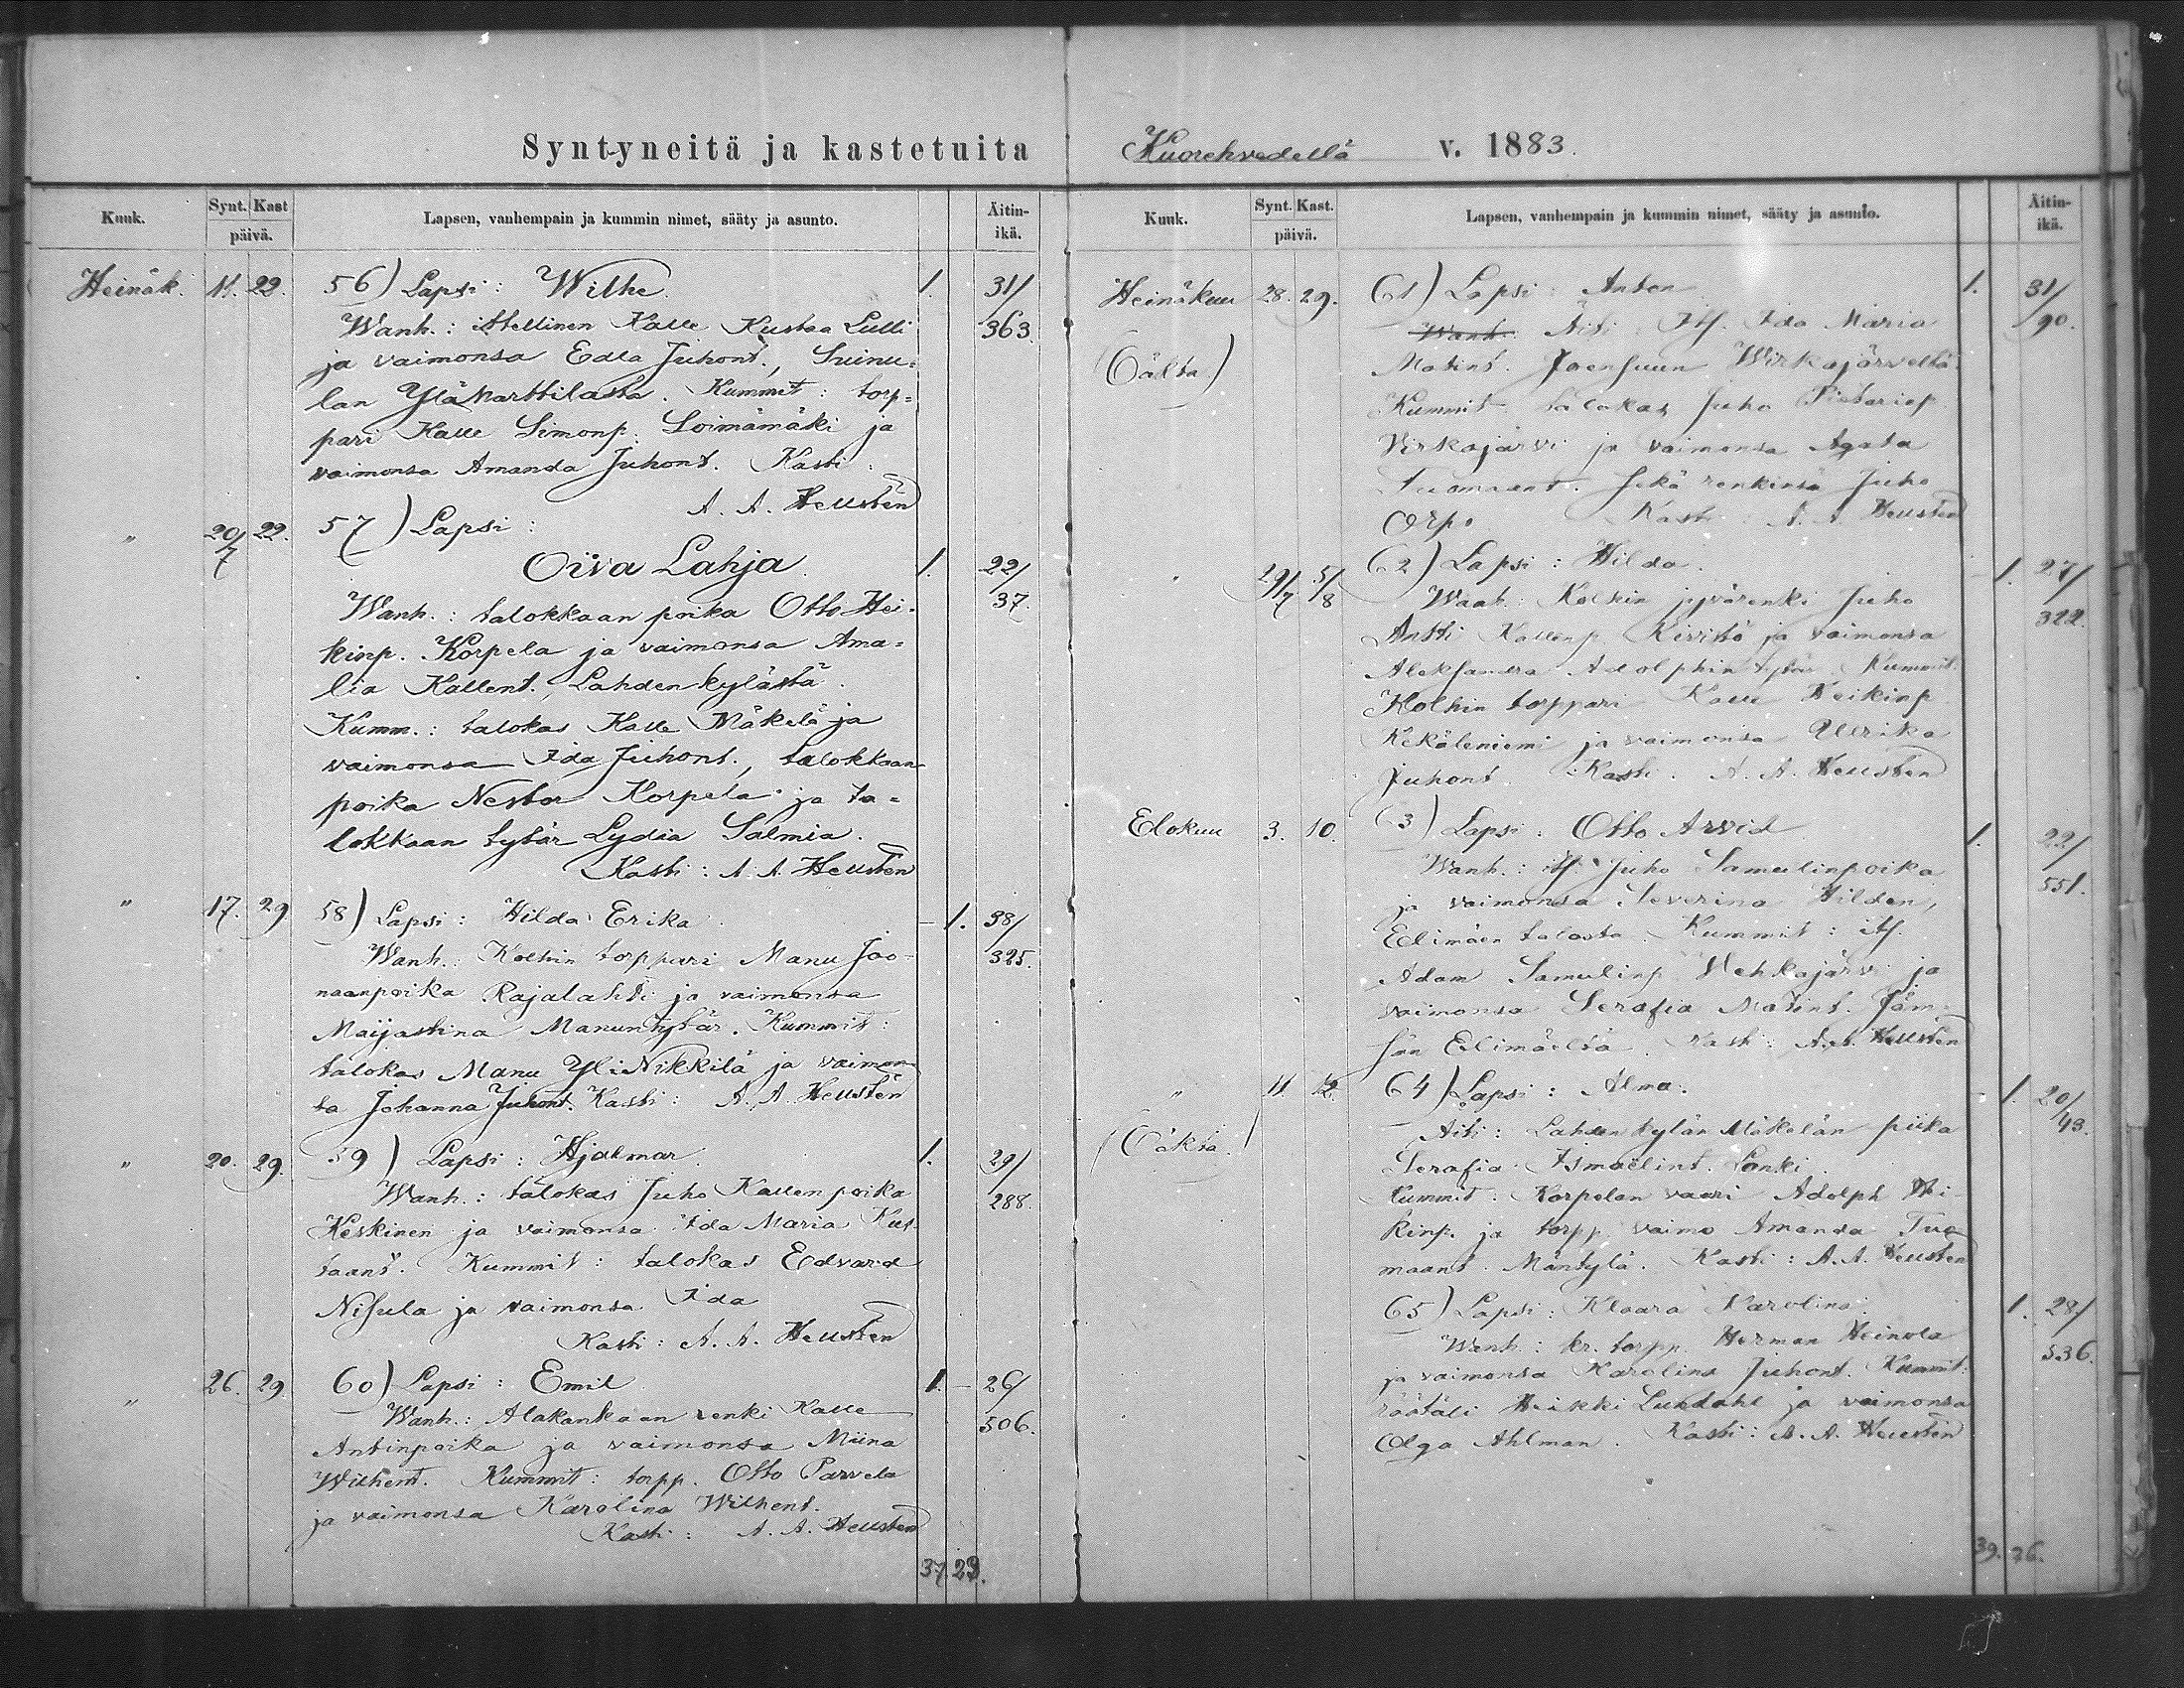 Syntyneitä ja kastetuita
Kuuk.
Synt. Kast
päivä.
Lapsen, vanhempain ja kummin nimet, sääty ja asunto.
Äitin-
ikä.
Heinäk. 11. 22. 56) Lapsi: Wilhe. 1. 31/
Wanh.: itellinen Kalle Kustaa Lulli 363.
ja vaimonsa Edla Juhont., Suinu=
lan Ylä Marttilasta. Kummit: torp=
pari Kalle Simonp. Loimämäki ja
vaimonsa Amanda Juhont. Kasti:
A. A. Hellstén
" 20/7 22. 57) Lapsi:
Oiva Lahja. 1. 22/
Wanh.: talokkaan poika Otto Hei- 37.
kinp. Korpela ja vaimonsa Ama=
lia Kallent., Lahdenkylästä.
Kumm.: talokas Kalle Mäkelä ja
vaimonsa Ida Juhont., talokkaan
poika Nestor Korpela ja ta=
lokkaan tytär Lydia Salmia.
Kasti: A. A. Hellstén
" 17. 29 58) Lapsi: Hilda Erika - 1. 38/
Wanh.: Kolhin torppari Manu Joo- 325.
naanpoika Rajalahti ja vaimonsa
Maijastina Manuntytär. Kummit:
talokas Manu YliNikkilä ja vaimon
sa Johanna Juhont. Kasti: A. A. Hellstén
" 20. 29. 59) Lapsi: Hjalmar. 1. 29/
Wanh.: talokas Juho Kallenpoika 288.
Keskinen ja vaimonsa Ida Maria Kus-
taant. Kummit: talokas Edvard
Nisula ja vaimonsa Ida
Kasti: A. A. Hellstén
" 26. 29 60) Lapsi: Emil 1. - 26/
Wanh.: Alakankaan renki Kalle 506.
Antinpoika ja vaimonsa Miina
Wilhent. Kummit: torpp. Otto Parvela
ja vaimonsa Karolina Wilhent.
Kasti: A. A. Hellstén
37. 23.
Kuorehvedellä v. 1883.
Kuuk.
Synt. Kast.
päivä.
Lapsen, vanhempain ja kummin nimet, sääty ja asunto.
Äitin-
ikä.
Heinäkuu 28. 29. 61) Lapsi Anton 1. 31/
Wanh. Äiti Itf. Ida Maria 90.
(Äältä) Matint. Joensuun Wirkajärveltä
Kummit talokas Juho Pietarinp
Virkajärvi ja vaimonsa Agata
Tuomaant. sekä renkinsä Juho
Orpo Kasti: A. A. Hellstén
" 29/7 5/8 62) Lapsi: Hilda. - 1. 27/
Wanh: Kolhin jyvärenki Juho 322.
Antti Kallenp Kivistö ja vaimonsa
Aleksandra Adolphin tytär. Kummit:
Kolhin torppari Kalle Heikinp
Kekäleniemi ja vaimonsa Ullrika
Juhont. Kasti. A. A. Hellstén
Elokuu 3. 10. 63) Lapsi: Otto Arvid 1. 22/
Wanh.: itf. Juho Samulinpoika 551.
ja vaimonsa Severina Hilden,
Edimäen talosta. Kummit: itf.
Adam Samulinp Vehkajärvi ja
vaimonsa Serafia Matint. Jäm-
sän Edimäeltä. Kasti: A. A. Hellstén
" 11. 12. 64) Lapsi: Alma. - 1. 20/
Äiti: Lahdenkylän Mäkelän piika 43.
Serafia Ismaelint. Lanki.
Kummit: Korpelan vaari Adolph Hei-
kinp. ja torpp. vaimo Amanda Tuo
maant. Mäntylä. Kasti: A. A. Hellstén
65) Lapsi: Klaara Karolina. 1. 28/
Wanh.: kr. torpp. Herman Heinola 536.
ja vaimonsa Karolina Juhont. Kummit:
räätäli Heikki Lundahl ja vaimonsa
Olga Ahlman. Kasti: A. A. Hellstén
39. 26.